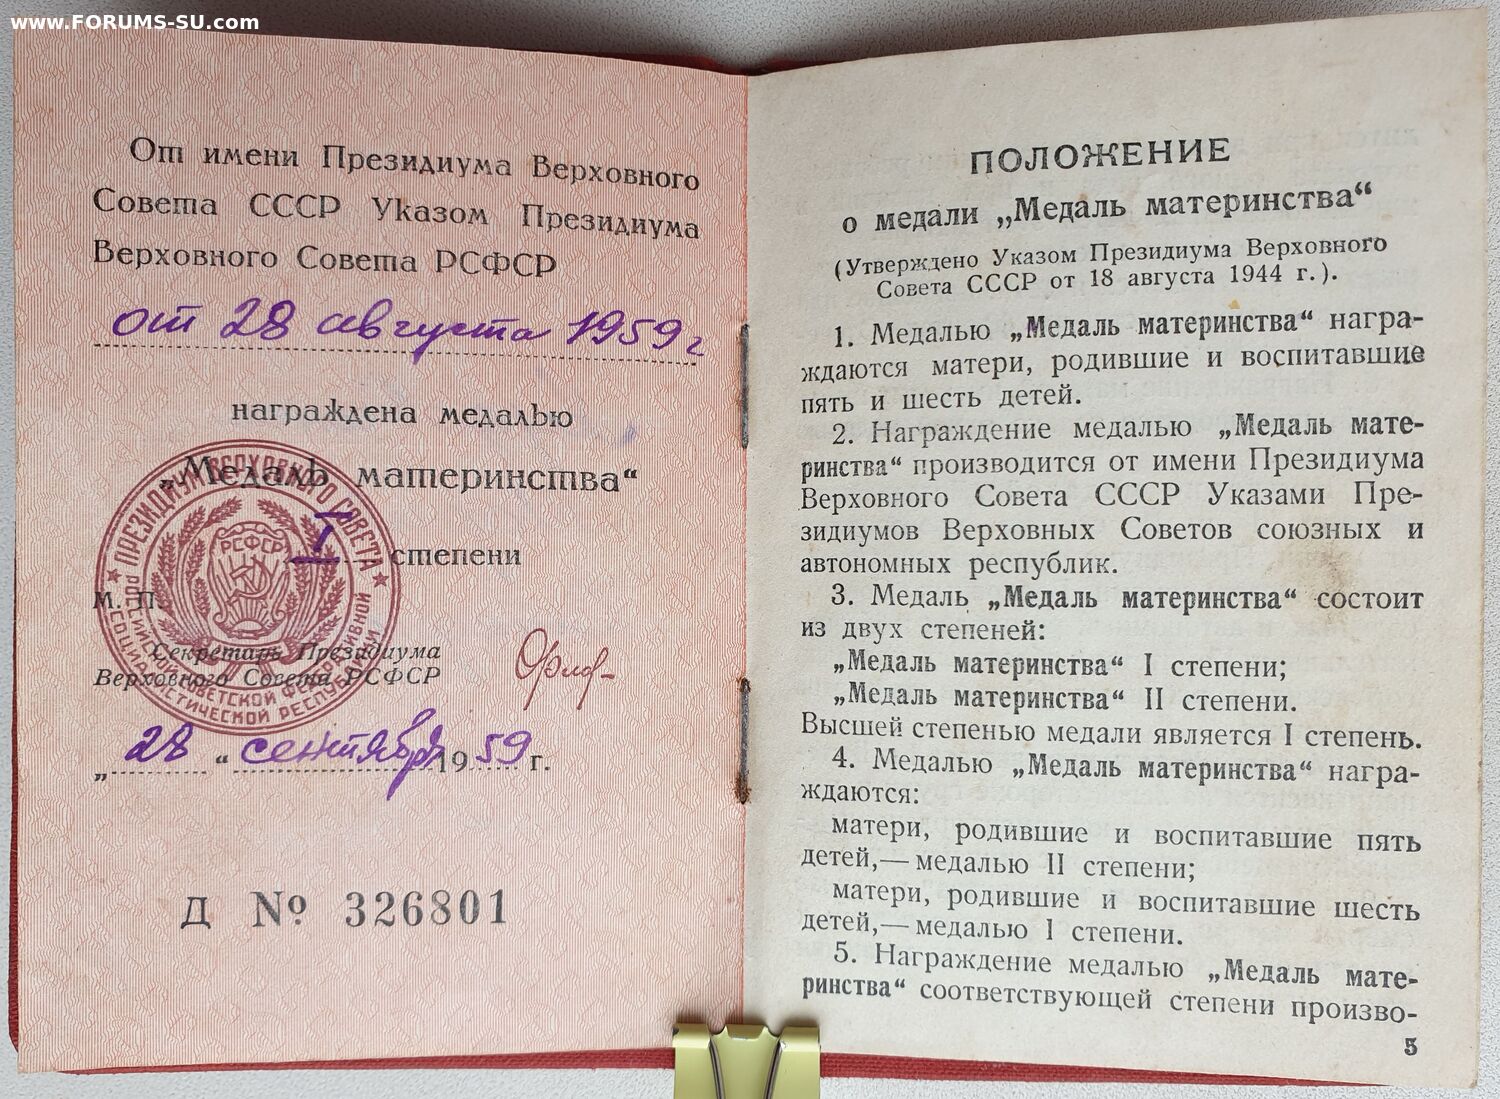 www.FORUMS-SU.com
От имени Президиума Верховного
Совета СССР Указом Президиума
Верховного Совета РСФСР
от 28 августа 1959 г
награждена медалью
„Медаль материнства“
I степени
М. П.
Секретарь Президиума
Верховного Совета РСФСР
„28“ сентября 1959 г.
Д № 326801
ПРЕЗИДИУМ ВЕРХОВНОГО СОВЕТА
РОССИЙСКОЙ СОВЕТСКОЙ ФЕДЕРАТИВНОЙ
СОЦИАЛИСТИЧЕСКОЙ РЕСПУБЛИКИ
РСФСР
ПОЛОЖЕНИЕ
о медали „Медаль материнства“
(Утверждено Указом Президиума Верховного
Совета СССР от 18 августа 1944 г.).
1. Медалью „Медаль материнства“ награ-
ждаются матери, родившие и воспитавшие
пять и шесть детей.
2. Награждение медалью „Медаль мате-
ринства“ производится от имени Президиума
Верховного Совета СССР Указами Пре-
зидиумов Верховных Советов союзных и
автономных республик.
3. Медаль „Медаль материнства“ состоит
из двух степеней:
„Медаль материнства“ I степени;
„Медаль материнства“ II степени.
Высшей степенью медали является I степень.
4. Медалью „Медаль материнства“ награ-
ждаются:
матери, родившие и воспитавшие пять
детей,— медалью II степени;
матери, родившие и воспитавшие шесть
детей,— медалью I степени.
5. Награждение медалью „Медаль мате-
ринства“ соответствующей степени произво-
5